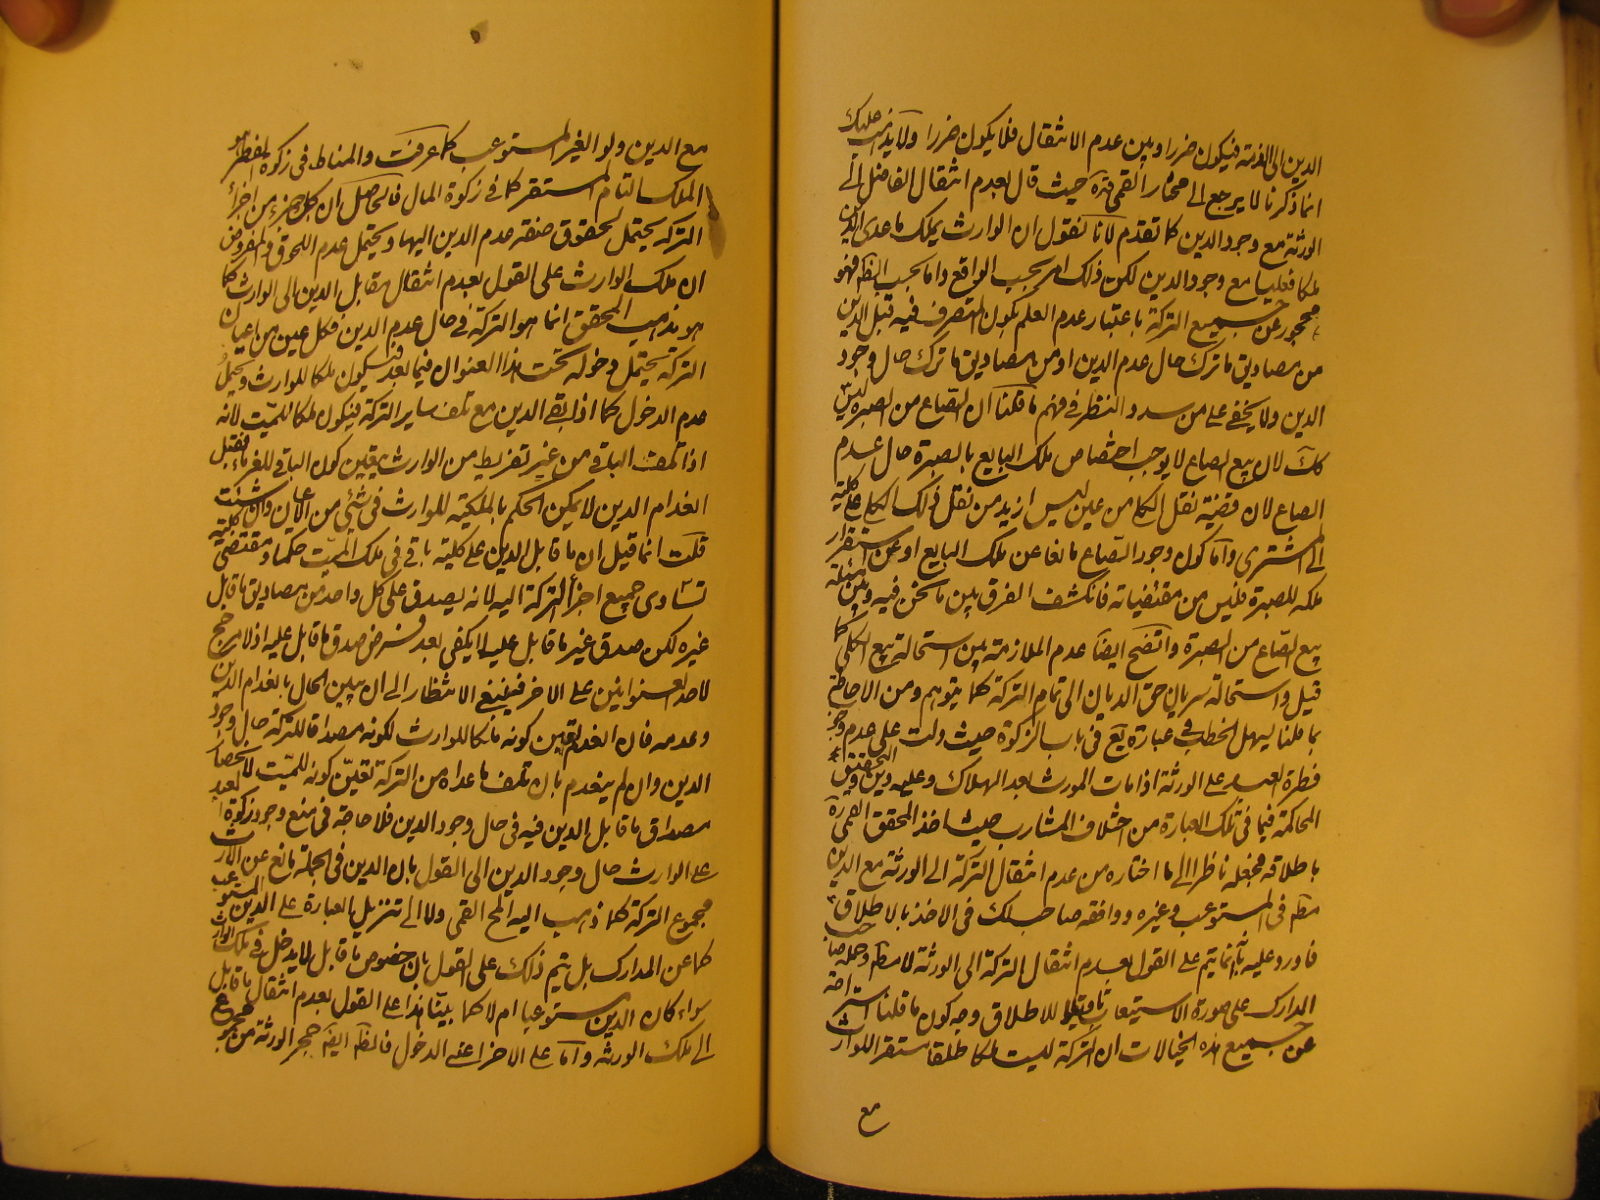 الدين الى الذمة فيكون ضررا وبين عدم الانتقال فلا يكون ضررا ولا يذهب عليك
انما ذكرنا لا يرجع الى مختار القمي ره حيث قال بعدم انتقال الفاضل الى
الورثة مع وجود الدين كما تقدم لانا نقول ان الوارث يملك ما عدى الدين
ملكا فعليا مع وجود الدين لكن ذلك امر بحسب الواقع واما بحسب الظم فهو
محجور عن جميع التركة باعتبار عدم العلم بكون المتصرف فيه قبل الدين
من مصاديق ما ترك حال عدم الدين او من مصاديق ما ترك حال وجود
الدين ولا يخفى على من سدد النظر في فهم ما قلنا ان الصاع من الصبرة ليس
كك لان بيع الصاع لا يوجب اختصاص ملك البايع بالصبرة حال عدم
الصاع لان قضية نقل الكلى من عين ليس ازيد من نقل ذلك الكلى على كليته
الى المشترى واما كون وجود الصاع مانعا عن ملك البايع او عن استقرار
ملكه للصبرة فليس من مقتضياته فانكشف الفرق بين ما نحن فيه وبين مسئلة
بيع الصاع من الصبرة واتضح ايضا عدم الملازمة بين استحالة بيع الكلى كما
قيل واستحالة سريان حق الديان الى تمام التركة كما يتوهم ومن الاحاطة
بما قلنا يسهل الخطب في عبارة يع في باب الزكوة حيث دلت على عدم وجوب
فطرة العبد على الورثة اذا مات المورث بعد الهلاك وعليه دين
المحاكمة فيما في تلك العبارة من اختلاف المشارب حيث اخذ المحقق القمى ره
باطلاقه فجعله ناظرا الى ما اختاره من عدم انتقال التركة الى الورثة مع الدين
مطم في المستوعب وغيره ووافقه صاحب لك في الاخذ بالاطلاق
فاورد عليه بانه انما يتم على القول بعدم انتقال التركة الى الورثة لا مطم وحمله صاحب
المدارك على صورة الاستيعاب للاطلاق وجه كون ما قلنا
عن جميع هذه الخيالات ان التركة للميت ملكا مستقر اللوارث
مع
مع الدين ولو الغير المستوعب كما عرفت والمناط في زكوة الفطر هو
الملك التام المستقر كما في زكوة المال فالحاصل ان كل جزء من اجزاء
التركة يحتمل لحقوق صفته عدم الدين اليها ويحتمل عدم اللحوق والمفروض
ان ملك الوارث على القول بعدم انتقال مقابل الدين الى الوارث كما
هو مذهب المحقق انما هو التركة في حال عدم الدين فكل عين من اعيان
التركة يحتمل دخوله تحت هذا العنوان فيما بعد فيكون ملكا للوارث ويحتمل
عدم الدخول كما اذا بقى الدين مع تلف ساير التركة فيكون ملكا للميت لانه
اذا تلفت الباقى من غير تفريط من الوارث يتعين كون الباقى للغرماء فقبل
انعدام الدين لا يمكن الحكم بالملكية للوارث في شئ من الاعيان وان شئت
قلت انما قيل ان ما قابل الدين على كليته باقى في ملك الميت حكما ومقتضى كليته
تساوى جميع اجزاء التركة اليه لانه يصدق على كل واحد من مصاديق ما قابل
غيره لكن صدق غير ما قابل عليه لا يكفى بعد فرض صدق ما قابل عليه اذ لا مرجح
لاحد العنوانين على الاخر فينبغى الانتظار الى ان يبين الحال بانعدام الدين
وعدمه فان انعدم تعين كونه مالكا للوارث لكونه مصداقا للتركة حال وجود
الدين وان لم ينعدم بان تلف ما عداه من التركة تعين كونه للميت لانحصار
مصداق ما قابل الدين فيه في حال وجود الدين فلا حاجة في منع وجوب زكوة العبد
على الوارث حال وجود الدين الى القول بان الدين في الجملة مانع عن الارث
مجموع التركة كما ذهب اليه المح القمى ولا الى تنزيل العبارة على الدين المستوعب
كما عن المدارك بل يتم ذلك على القول بان خصوص ما قابل لا يدخل في ملك الوارث
سواء كان الدين مستوعبا ام لا كما بينا هذا على القول بعدم انتقال ما قابل
الى ملك الورثة واما على الاخر اعنى الدخول فالظم ايضا حجر الورثة من مجموع